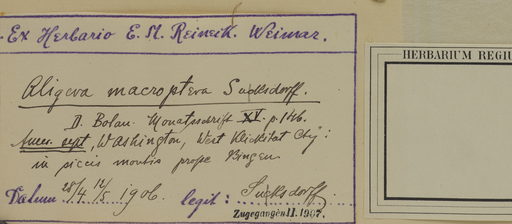 Ex Herbario E. M. Reineck. Weimar.
HERBARIUM REGIU
Aligera macroptera Suksdorff.
D. Botan. Monatsschrift XV. p. 146.
Amer. sept, Washington, West Klickitat Cty:
in piceis montis prope Bingen
Datum 28/4 12/5 1906. legit: Suksdorff
Zugegangen II. 1907.